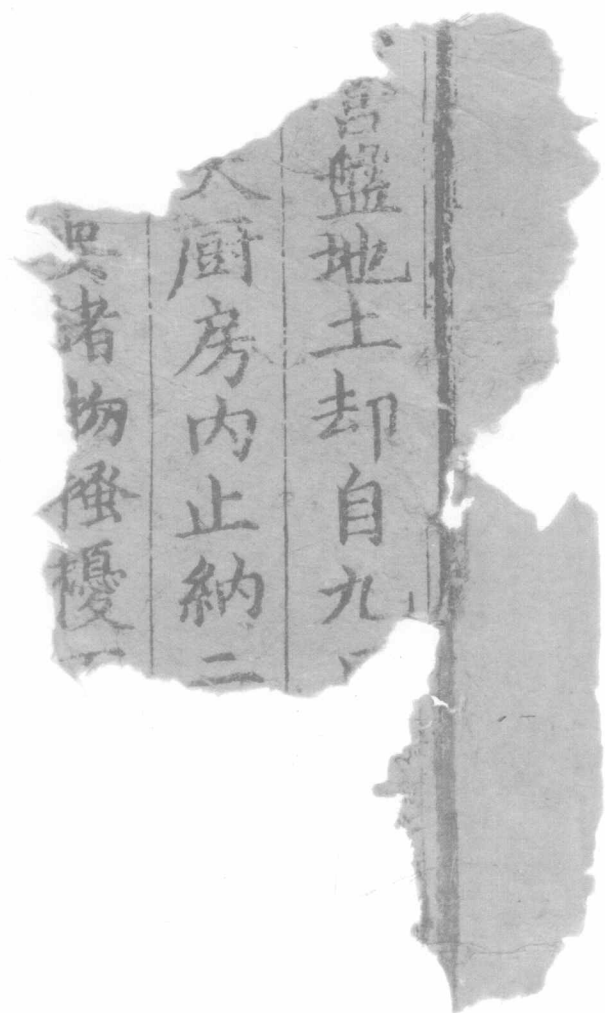 宫盤地土却自九
入厨房内止納二
諸物搔擾